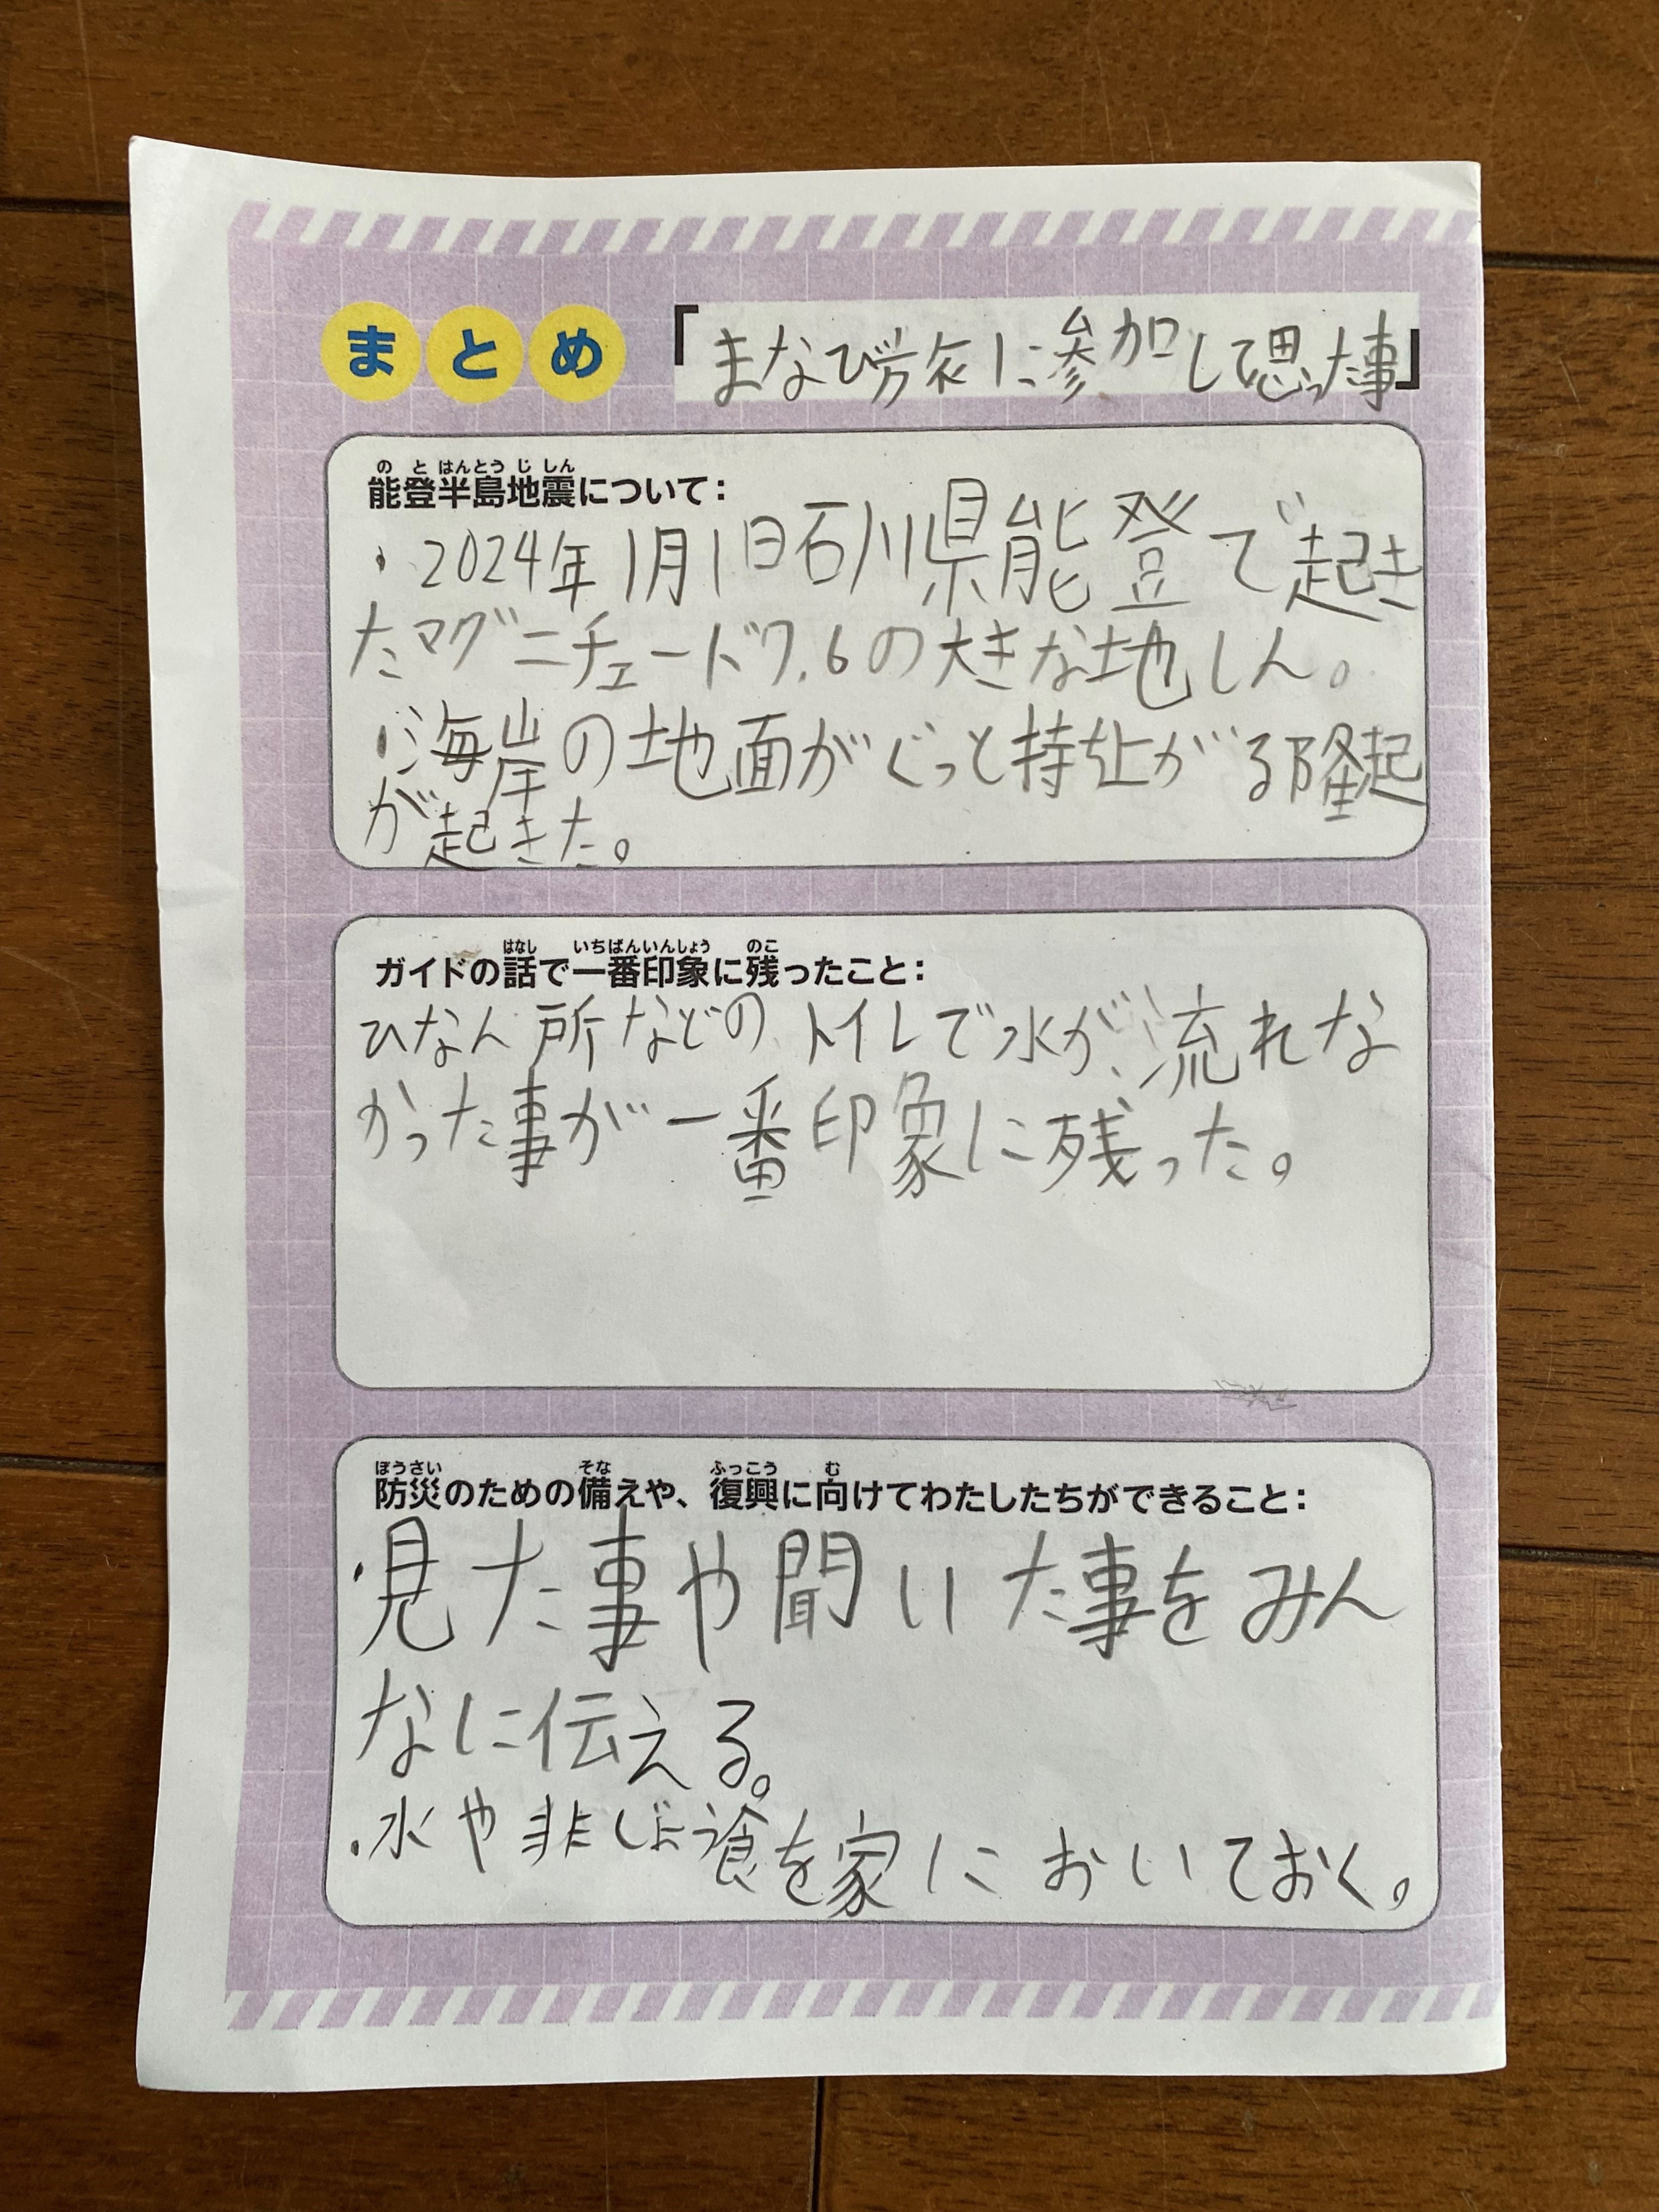 まとめ 「まなび旅に参加して思った事」
のとはんとうじしん
能登半島地震について：
・2024年1月1日石川県能登で起き
たマグニチュード7.6の大きな地しん。
・海岸の地面がぐっと持ち上がる隆起
が起きた。
はなし いちばんいんしょう のこ
ガイドの話で一番印象に残ったこと：
ひなん所などのトイレで水が、流れな
かった事が一番印象に残った。
ぼうさい そな ふっこう む
防災のための備えや、復興に向けてわたしたちができること：
・見た事や聞いた事をみん
なに伝える。
・水や非じょう食を家においておく。